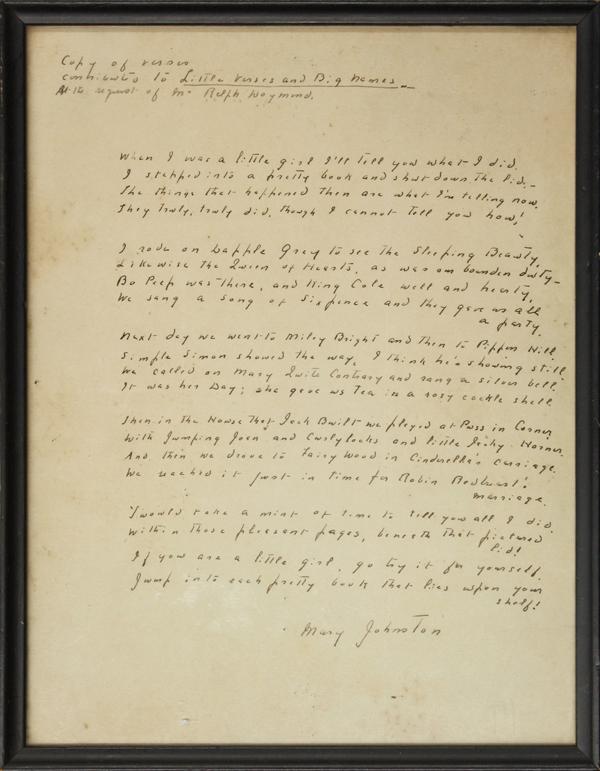 Copy of verses
contributed to Little Verses and Big Names
At the request of Mr Ralph Waymond.
When I was a little girl I'll tell you what I did.
I stepped into a pretty book and shut down the lid.
The things that happened then are what I'm telling now.
They truly, truly did, though I cannot tell you how!
I rode on Dapple Grey to see the Sleeping Beauty,
Likewise the Queen of Hearts, as was our bounden duty
Bo Peep was there, and King Cole well and hearty,
We sang a Song of Sixpence and they gave us all
a party.
Next day we went to Miley Bright and then to Pippin Hill
Simple Simon showed the way, I think he's showing still
We called on Mary Quite Contrary and rang a silver bell
It was her Day; she gave us tea in a rosy cockle shell
Then in the House That Jack Built we played at Puss in Corner
With Jumping Joan and Curlylocks and little Jacky Horner
And then we drove to Fairy Wood in Cinderella's carriage.
We reached it just in time for Robin Redbreast's
marriage.
'Twould take a mint of time to tell you all I did
Within those pleasant pages, beneath that pictured
lid!
If you are a little girl, go try it for yourself.
Jump into each pretty book that lies upon your
shelf!
Mary Johnston